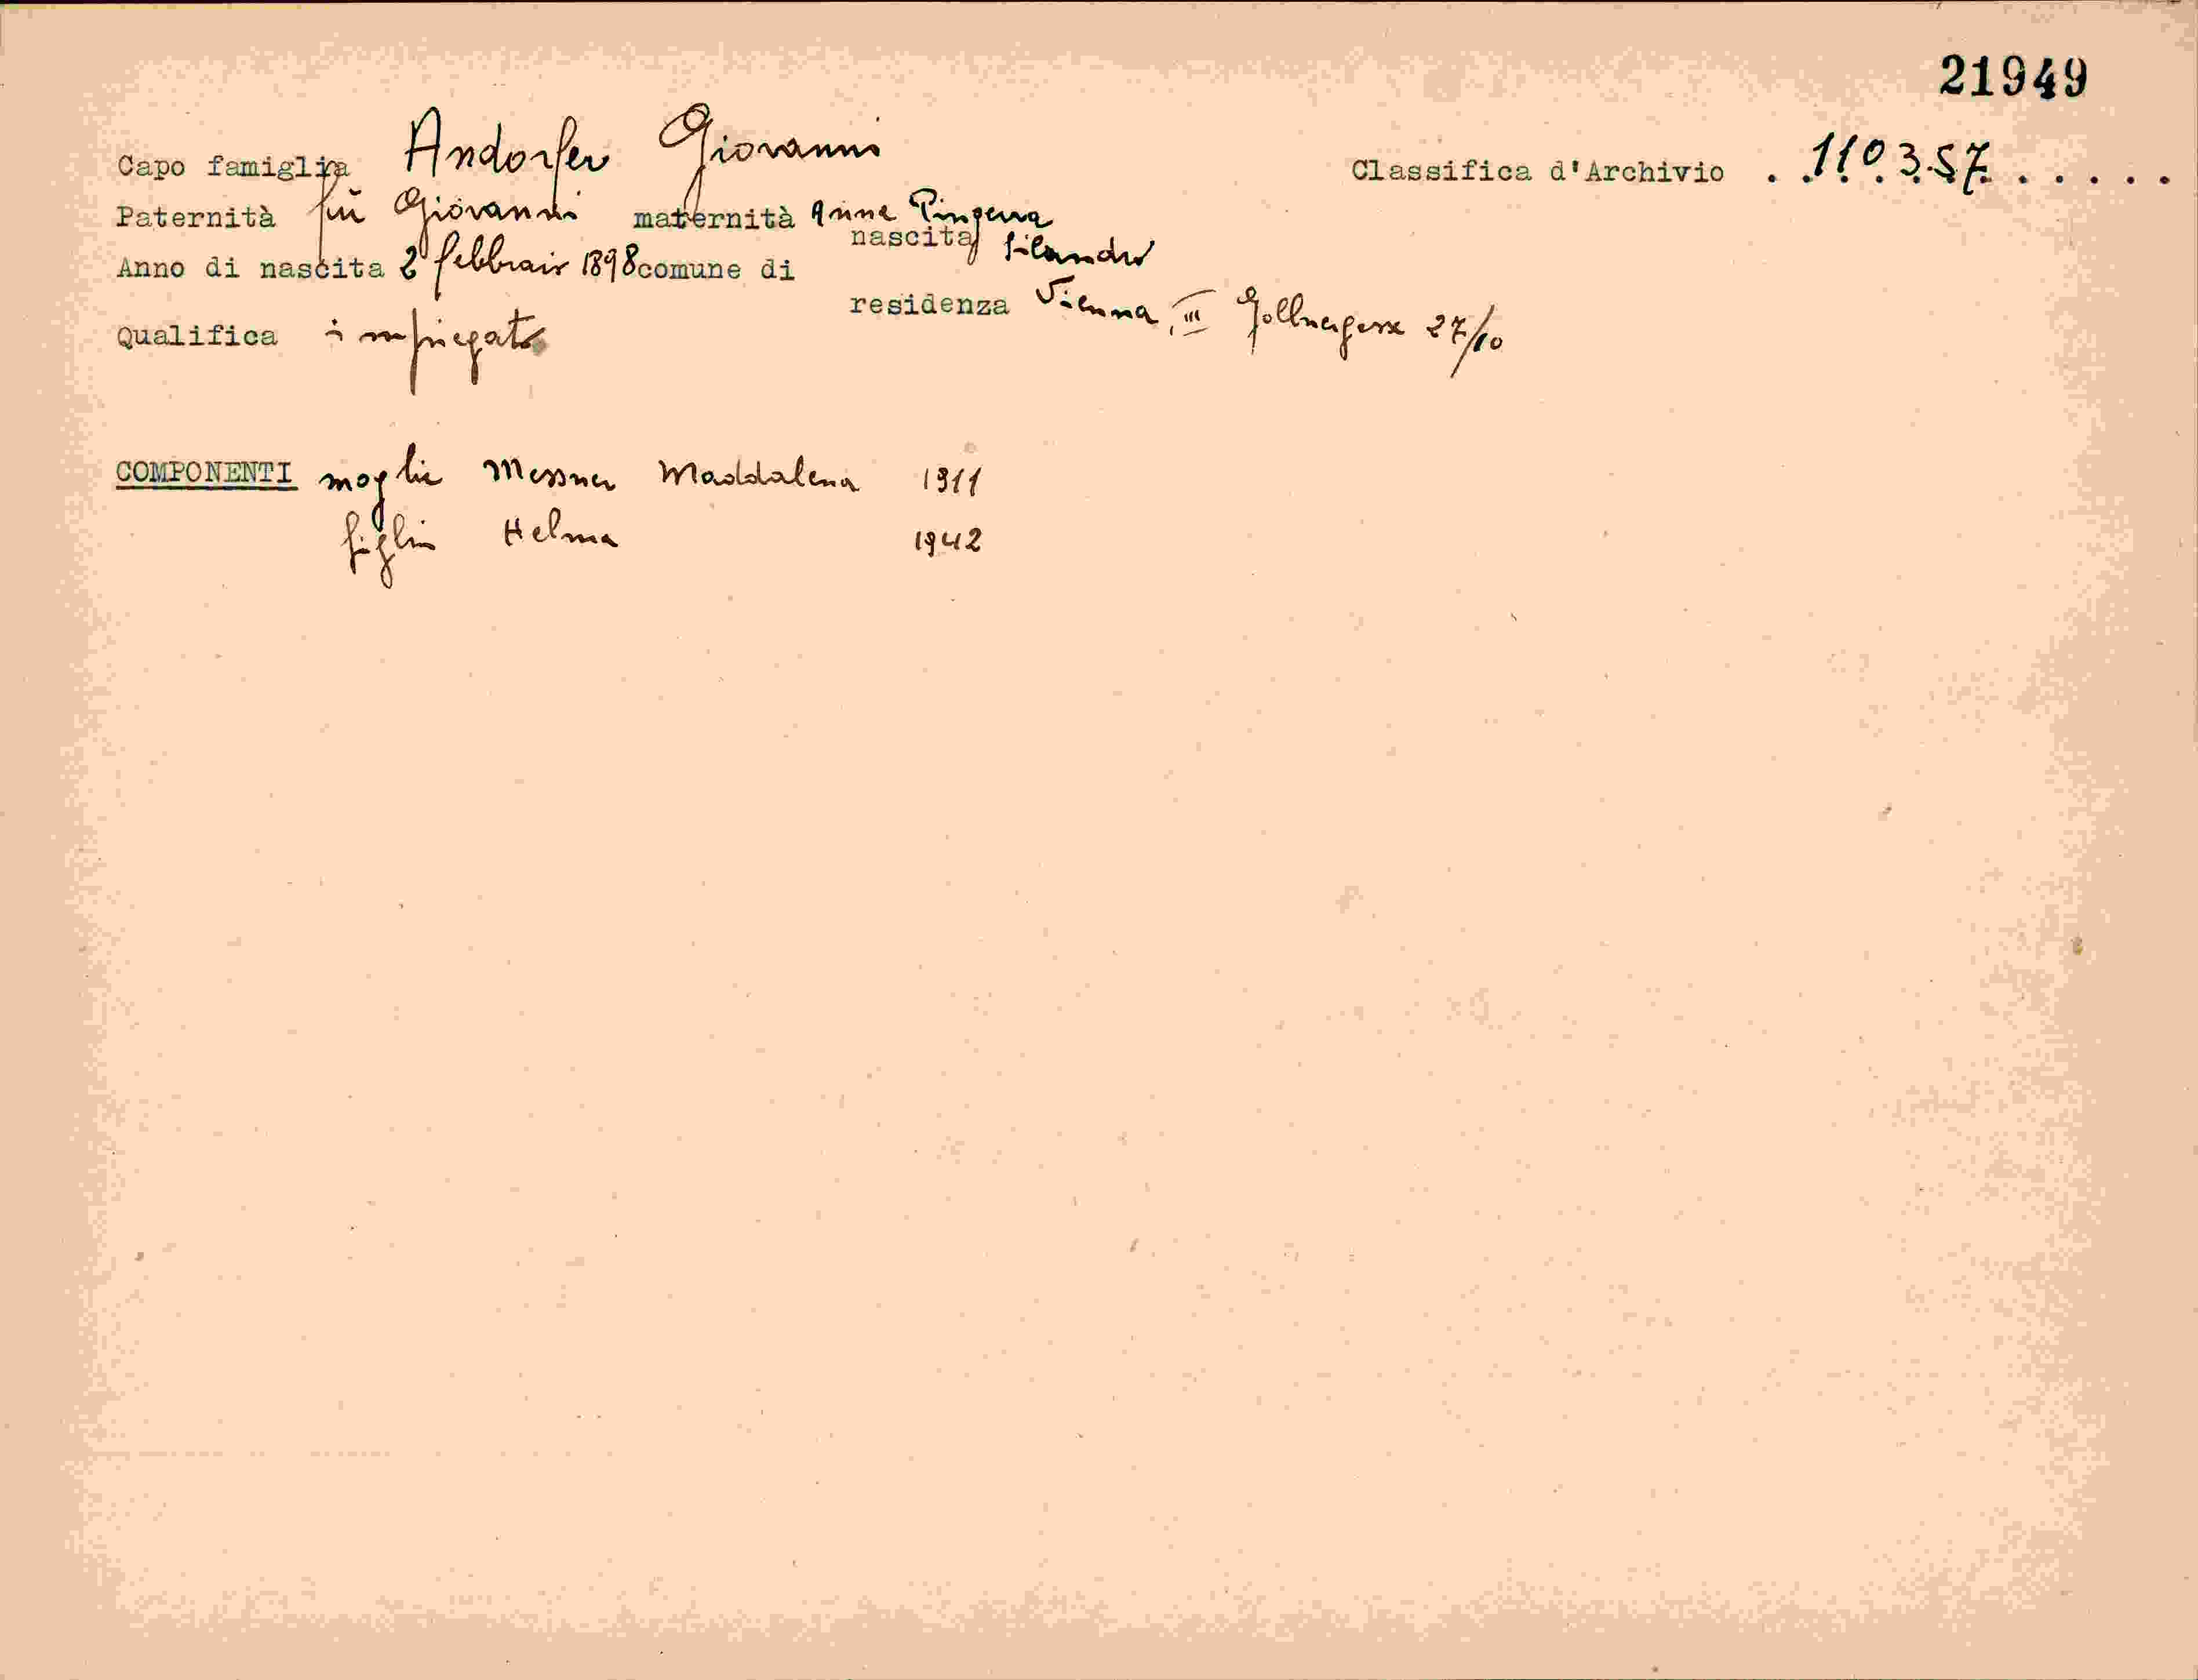 21949
Capo famiglia Andorfer Giovanni Classifica d'Archivio . 110357 . . . . .
Paternità fu Giovanni maternità Anna Pingerra
nascita Silandro
Anno di nascita 2 febbraio 1898 comune di
residenza Vienna, III 27/10
Qualifica impiegato
COMPONENTI moglie Messner Maddalena 1911
figlia Helma 1942